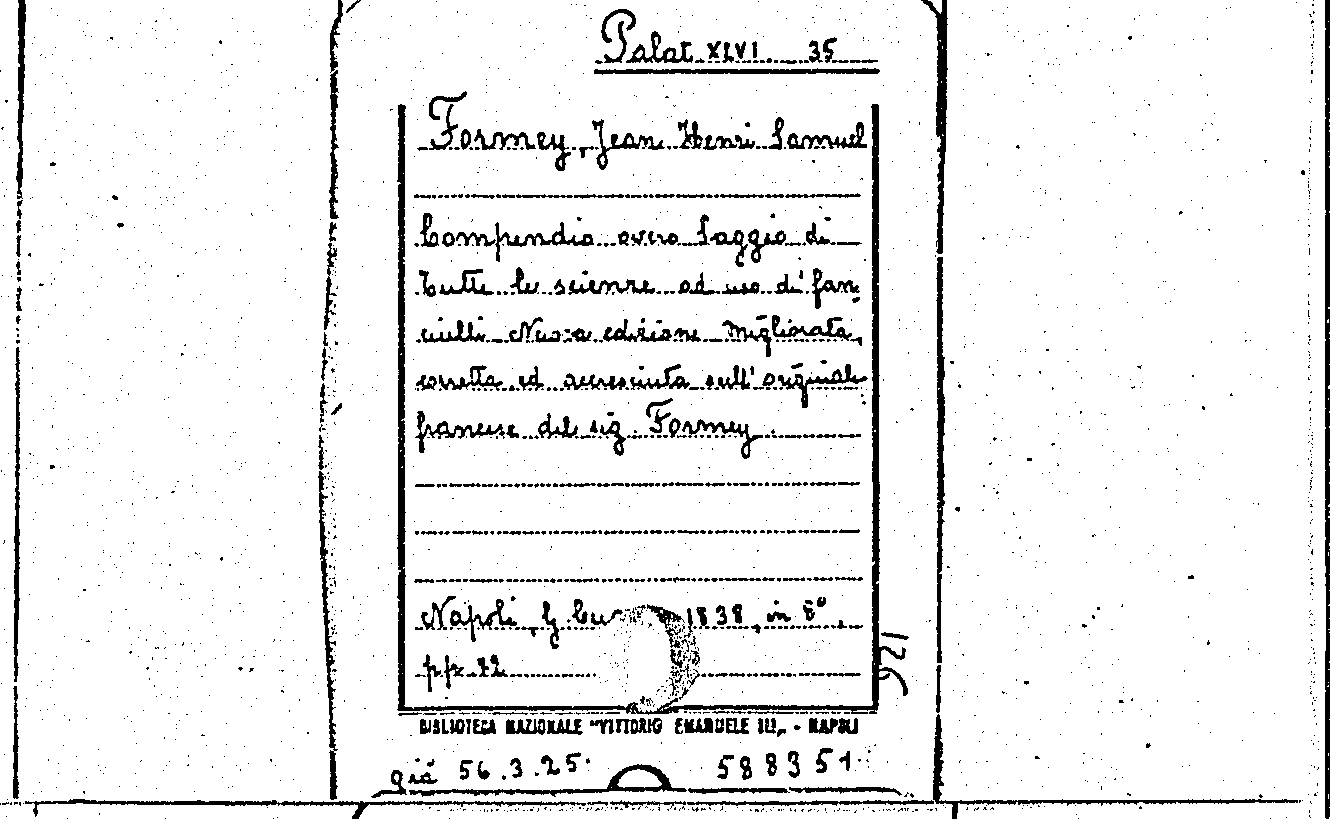 Palat. XLVI. 35
Formey, Jean Henri Samuel
Compendio overo Saggio di
tutte le scienze ad uso di fan,
ciulli Nuova edizione migliorata,
corretta ed accresciuta sull'originale
francese del sig. Formey.
Napoli, G. 1838, in 8°.
pp. 72
921
BIBLIOTECA NAZIONALE "VITTORIO EMANUELE III„ - NAPOLI
già 56.3.25.
588351